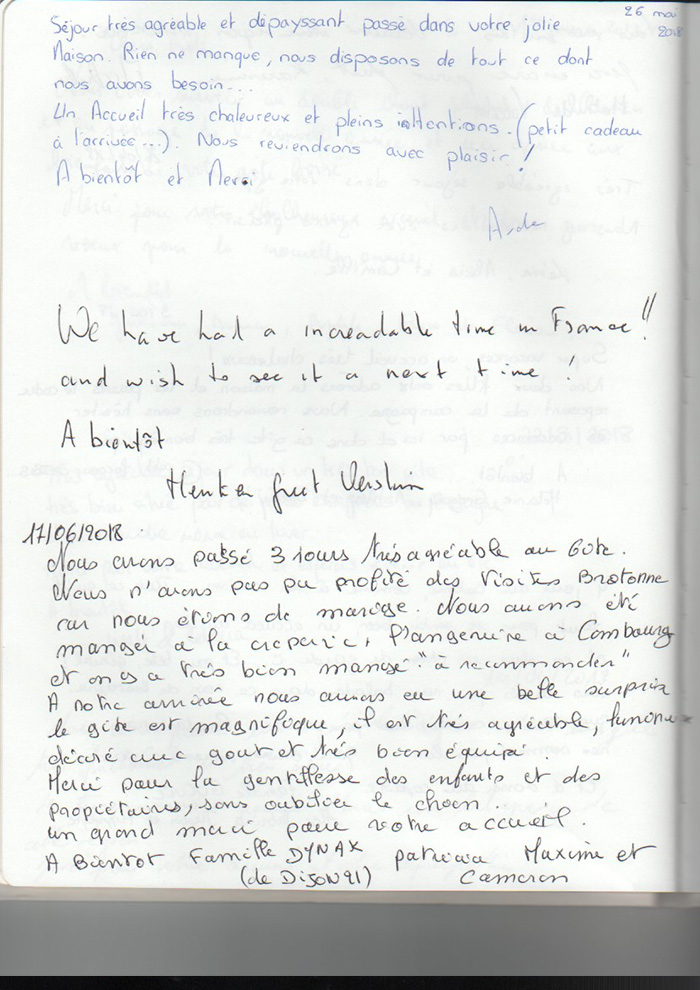 26 mai
2018
Séjour très agréable et dépayssant passé dans votre jolie
Maison. Rien ne manque, nous disposons de tout ce dont
nous avons besoin...
Un Accueil très chaleureux et pleins d'attentions. (petit cadeau
à l'arrivée...). Nous reviendrons avec plaisir !
A bientôt et Merci
We have had a increadable time in France!!
and wish to see it a next time !
A bientôt
17/06/2018.
Nous avons passé 3 jours très agréable au Gite.
Nous n'avons pas pu profité des Visites Bretonne
car nous étions de mariage. Nous avons été
manger à la creperie, à Combourg
et on y a très bien mangé "à recommander"
A notre arrivée nous avons eu une belle surprise
le gite est magnifique, il est très agréable, lumineux
décoré avec gout et très bien équipé.
Merci pour la gentillesse des enfants et des
propriétaires, sans oublier le chien.
un grand merci pour votre accueil.
A Bientot Famille DYNAK patricia Maxime et
(de DiJON 21) Cameron